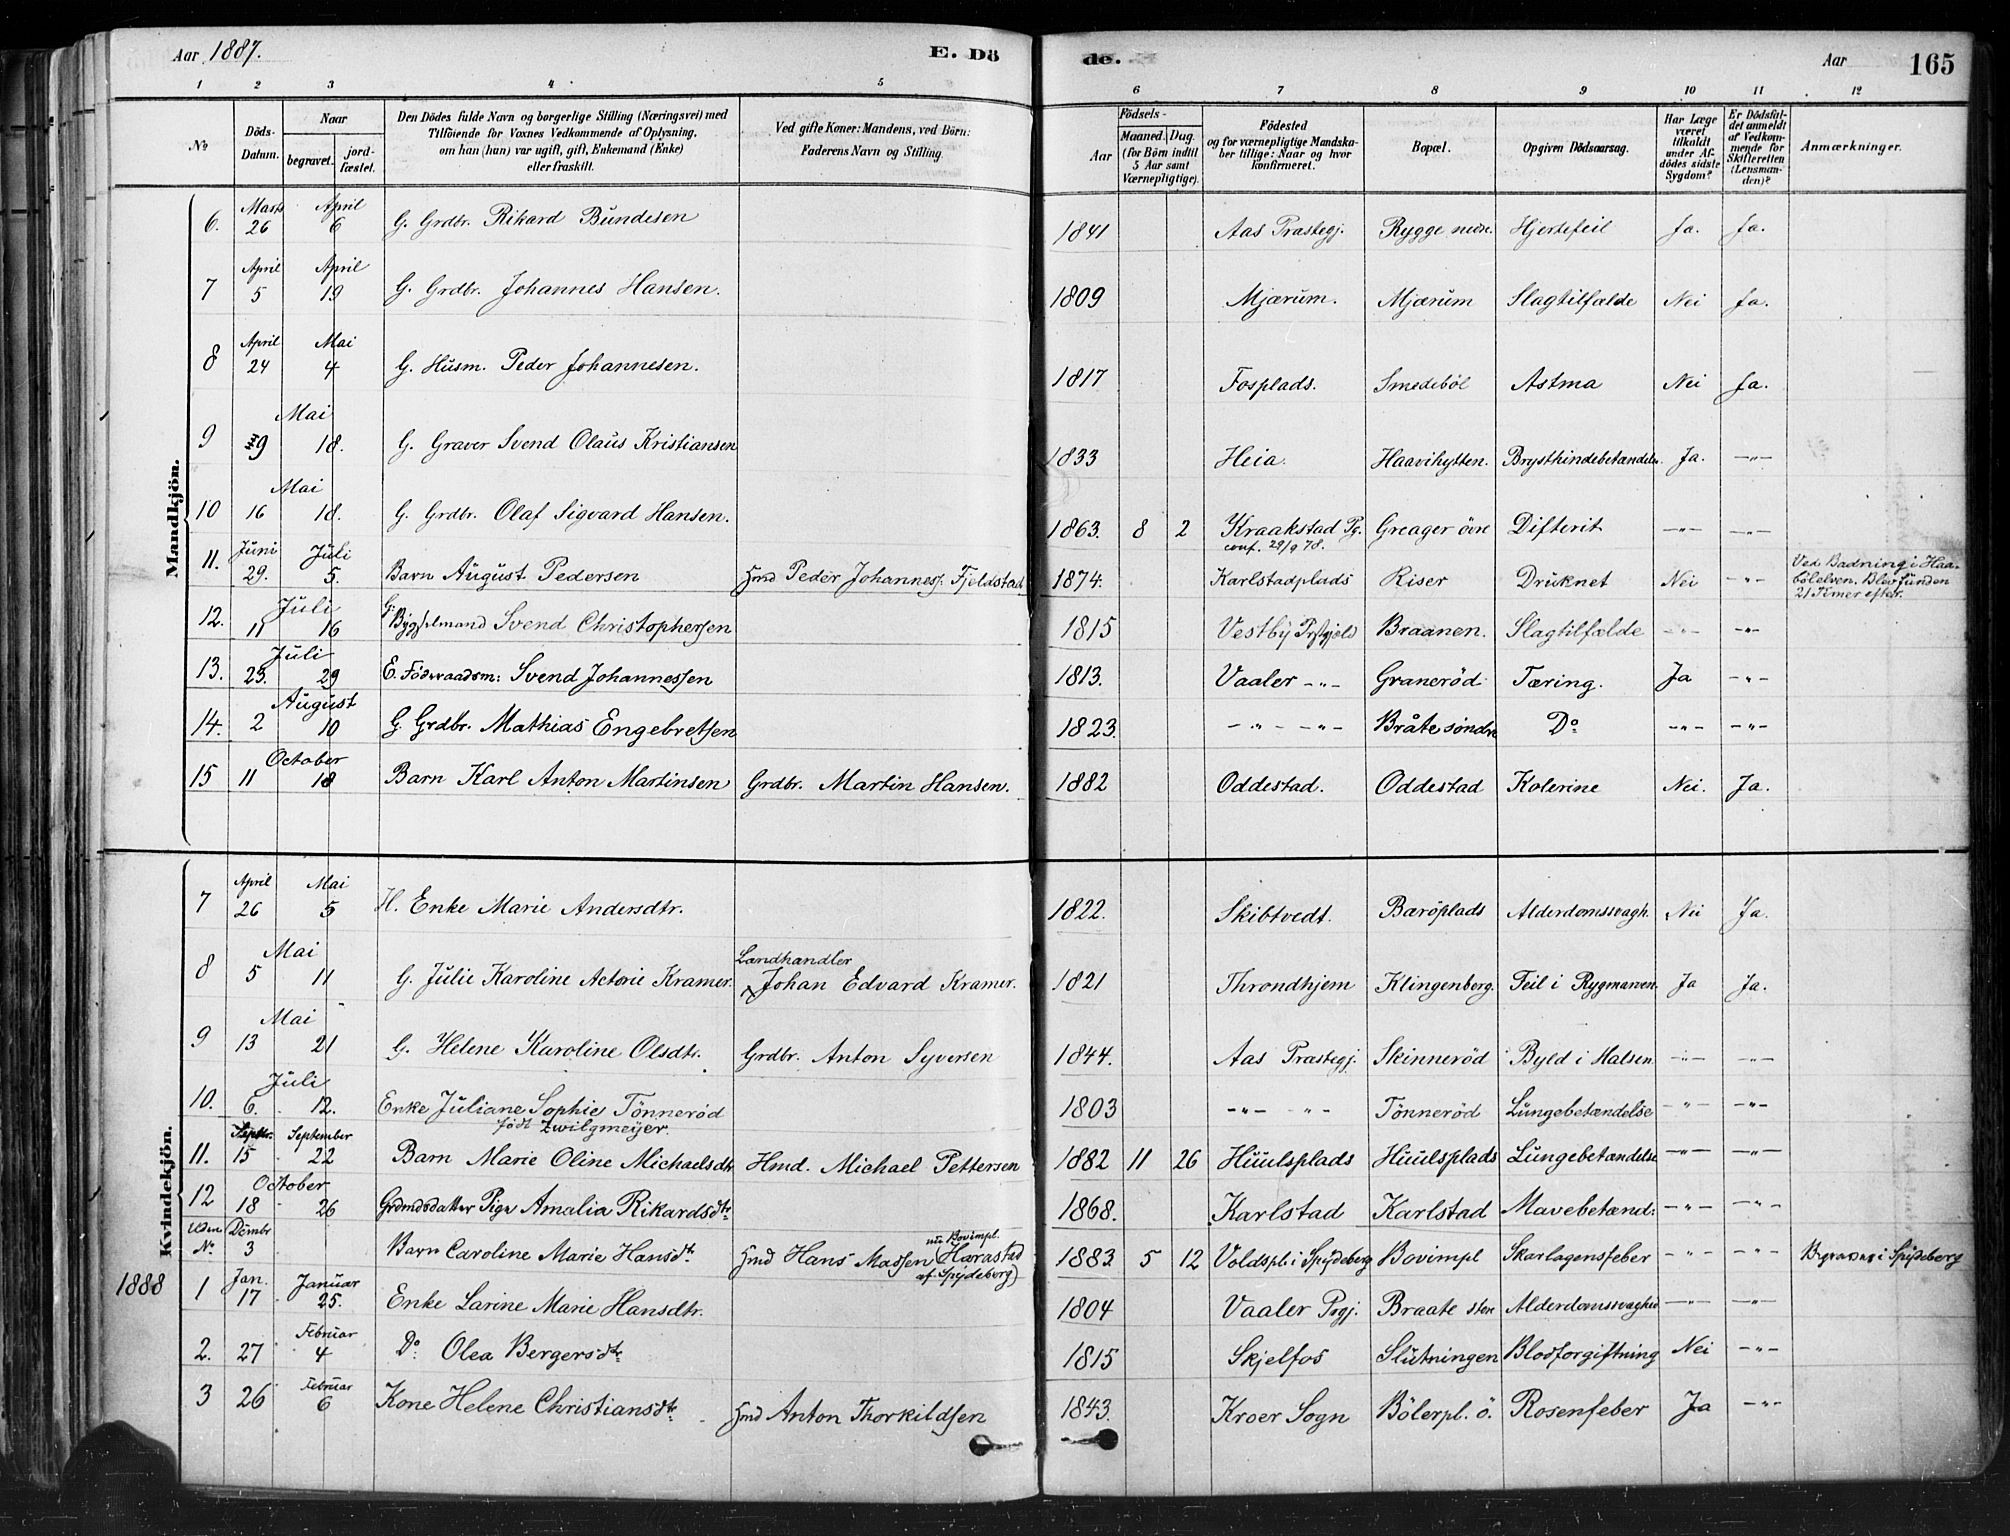 Aar 1887.
E. Dö
de.
Aar
165
1 2 3 4 5 6 7 8 9 10 11 12
No
Döds-Datum.
Naar begravet. jord-fæstet.
Den Dödes fulde Navn og borgerlige Stilling (Næringsvei) med Tilföiende for Voxnes Vedkommende af Oplysning, om han (hun) var ugift, gift, Enkemand (Enke) eller fraskilt.
Ved gifte Koner: Mandens, ved Börn: Faderens Navn og Stilling.
Födsels-
Aar
Maaned. Dag. (for Börn indtil 5 Aar samt Værnepligtige).
Födested og for værnepligtige Mandskaber tillige: Naar og hvor konfirmeret.
Bopæl.
Opgiven Dödsaarsag.
Har Læge været tilkaldt under Afdödes sidste Sygdom?
Er Dödsfaldet anmeldt af Vedkommende for Skifteretten (Lensmanden)?
Anmærkninger.
Mandkjön.
6. Marts 26 April 6 G. Grdbr. Rikard Bundesen 1841 Aas Prastegj. Rygge nedre. Hjertefeil Ja. Ja.
7 April 5 April 19 G. Grdbr. Johannes Hansen. 1809 Mjærum. Mjærum Slagtilfælde Nei Ja.
8 April 24 Mai 4 G. Husm. Peder Johannesen. 1817 Fosplads. Smedeböl Astma Nei Ja.
9 Mai 9 18. G. Graver Svend Olaus Kristiansen 1833 Heia. Haavihytten. Brysthindebetændelse. Ja. -"-
10 Mai 16 18. G. Grdbr. Olaf Sigvard Hansen. 1863. 8 2 Kraakstad Pg. conf. 29/9 78. Greager övre Difterit -"- -"-
11. Juni 29. Juli 5. Barn August Pedersen Hmd Peder Johanness. Fjeldstad 1874. Karlstadplads Riser Druknet Nei -"- Ved Badning i Haabölelven. Blev funden 21 Timer efter.
12. Juli 11 16 G. Byggselmand Svend Christophersen 1815 Vestby Prstgjeld Braanen. Slagtilfælde -"- -"-
13. Juli 23. 29 E. Föderaadsm: Svend Johannessen 1813. Vaaler -"- Granerød Tæring. Ja -"-
14. August 2 10 G. Grdbr. Mathias Engebretsen 1823. -"- -"- Bråte søndre Do -"- -"-
15 October 11 18 Barn Karl Anton Martinsen Grdbr. Martin Hansen. 1882 Oddestad. Oddestad Kolerine Nei. Ja.
Kvindekjön.
7 April 26 Mai 5 H. Enke Marie Andersdtr. 1822. Skibtvedt. Baröplads Alderdomssvagh. Nei Ja.
8 Mai 5 11 G. Julie Karoline Actorie Kramer. Landhandler Johan Edvard Kramer. 1821 Throndhjem Klingenberg. Feil i Rygmarven. Ja Ja.
9 Mai 13 21 G. Helene Karoline Olsdtr. Grdbr. Anton Syversen 1844. Aas Prastegj. Skinneröd Byld i Halsen -"- -"-
10. Juli 6. 12. Enke Juliane Sophie Tönneröd födt Zwilgmeyer. 1803 -"- -"- Tönneröd Lungebetændelse -"- -"-
11. Septbr. 15 September 22 Barn Marie Oline Michaelsdtr Hmd. Michael Pettersen 1882 11 26 Huulsplads Huulsplads Lungebetændelse -"- -"-
12 October 18 26 Grdmdsdatter Pige Amalia Rikardsdtr 1868. Karlstad Karlstad Mavebetænd: -"- -"-
Uden No. Dcmbr 3 Barn Caroline Marie Hansdtr Hmd Hans Massen Harastad nu Bovimpl. af Spydeberg) 1883. 5 12 Voldspl. i Spydeberg Bovimpl Skarlagensfeber -"- -"- Begravet i Spydeberg
1888 1 Jan. 17 Januar 25. Enke Larine Marie Hansdtr. 1804 Vaaler Prgj. Braate stere Alderdomssvaghed -"- -"-
2. 27 Februar 4 Do Olea Bergersdtr 1815 Skjelfos Slutningen Blodforgiftning Nei -"-
3 26 Februar 6 Kone Helene Christiansdtr Hmd Anton Thorkildsen 1843. Kroer Sogn Bölerpl. ö. Rosenfeber Ja -"-